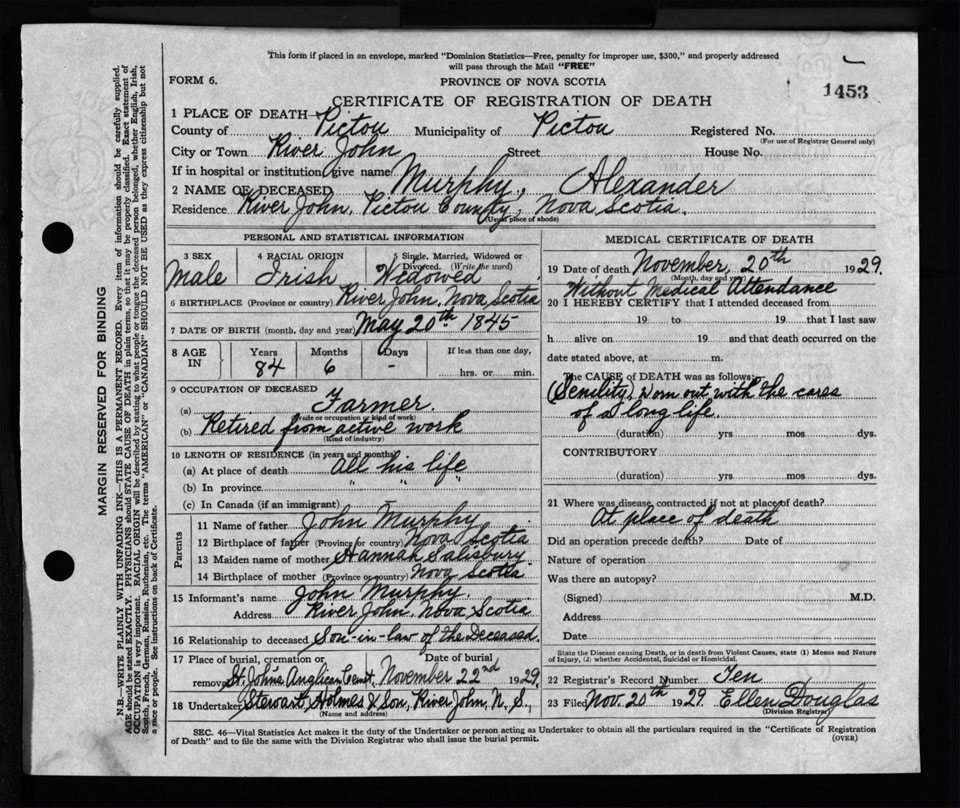 This form if placed in an envelope, marked "Dominion Statistics—Free, penalty for improper use, $300," and properly addressed
will pass through the Mail "FREE"
FORM 6.
PROVINCE OF NOVA SCOTIA
1453
CERTIFICATE OF REGISTRATION OF DEATH
1 PLACE OF DEATH—
County of Pictou Municipality of Pictou Registered No.
(For use of Registrar General only)
City or Town River John Street House No.
If in hospital or institution give name
2 NAME OF DECEASED Murphy, Alexander
Residence River John, Pictou County, Nova Scotia.
(Usual place of abode)
PERSONAL AND STATISTICAL INFORMATION
3 SEX 4 RACIAL ORIGIN 5 Single, Married, Widowed or
Divorced. (Write the word)
Male Irish Widowed
6 BIRTHPLACE (Province or country) River John, Nova Scotia
7 DATE OF BIRTH (month, day and year) May 20th 1845
8 AGE IN Years Months Days If less than one day,
84 6 - hrs. or min.
9 OCCUPATION OF DECEASED
(a) Farmer.
(Trade or occupation or kind of work)
(b) Retired from active work
(Kind of industry)
10 LENGTH OF RESIDENCE (in years and months)
(a) At place of death All his life
(b) In province " " "
(c) In Canada (if an immigrant)
Parents
11 Name of father John Murphy
12 Birthplace of father (Province or country) Nova Scotia
13 Maiden name of mother Hannah Salisbury
14 Birthplace of mother (Province or country) Nova Scotia
15 Informant's name John Murphy.
Address River John, Nova Scotia
16 Relationship to deceased Son-in-law of the Deceased.
17 Place of burial, cremation or Date of burial
removal St. John's Anglican Cemt. November 22nd 1929
18 Undertaker Stewart, Holmes & Son, River John, N. S.,
(Name and address)
MEDICAL CERTIFICATE OF DEATH
19 Date of death November, 20th 1929.
(Month, day and year)
Without Medical Attendance
20 I HEREBY CERTIFY that I attended deceased from
19 to 19 that I last saw
h alive on 19 and that death occurred on the
date stated above, at m.
The CAUSE of DEATH was as follows:
(Senility) Worn out with the cares
of a long life.
(duration) yrs mos dys.
CONTRIBUTORY
(duration) yrs mos dys.
21 Where was disease contracted if not at place of death?
At place of death
Did an operation precede death? Date of
Nature of operation
Was there an autopsy?
(Signed) M.D.
Address
Date
State the Disease causing Death, or in death from Violent Causes, state (1) Means and Nature
of Injury, (2) whether Accidental, Suicidal or Homicidal.
22 Registrar's Record Number Ten
23 Filed Nov. 20th 1929. Ellen Douglas
(Division Registrar)
SEC. 46—Vital Statistics Act makes it the duty of the Undertaker or person acting as Undertaker to obtain all the particulars required in the "Certificate of Registration
of Death" and to file the same with the Division Registrar who shall issue the burial permit.
(OVER)
MARGIN RESERVED FOR BINDING
N.B.—WRITE PLAINLY WITH UNFADING INK—THIS IS A PERMANENT RECORD. Every item of information should be carefully supplied.
AGE should be stated EXACTLY. PHYSICIANS should STATE CAUSE OF DEATH in plain terms, so that it may be properly classified. Exact statement of
OCCUPATION is very important. RACIAL ORIGIN will be described by stating to what people or tongue the deceased person belonged, whether English, Irish,
Scotch, French, German, Russian, Ruthenian, etc. The terms "AMERICAN" or "CANADIAN" SHOULD NOT BE USED as they express citizenship but not
a race or people. See instructions on back of Certificate.